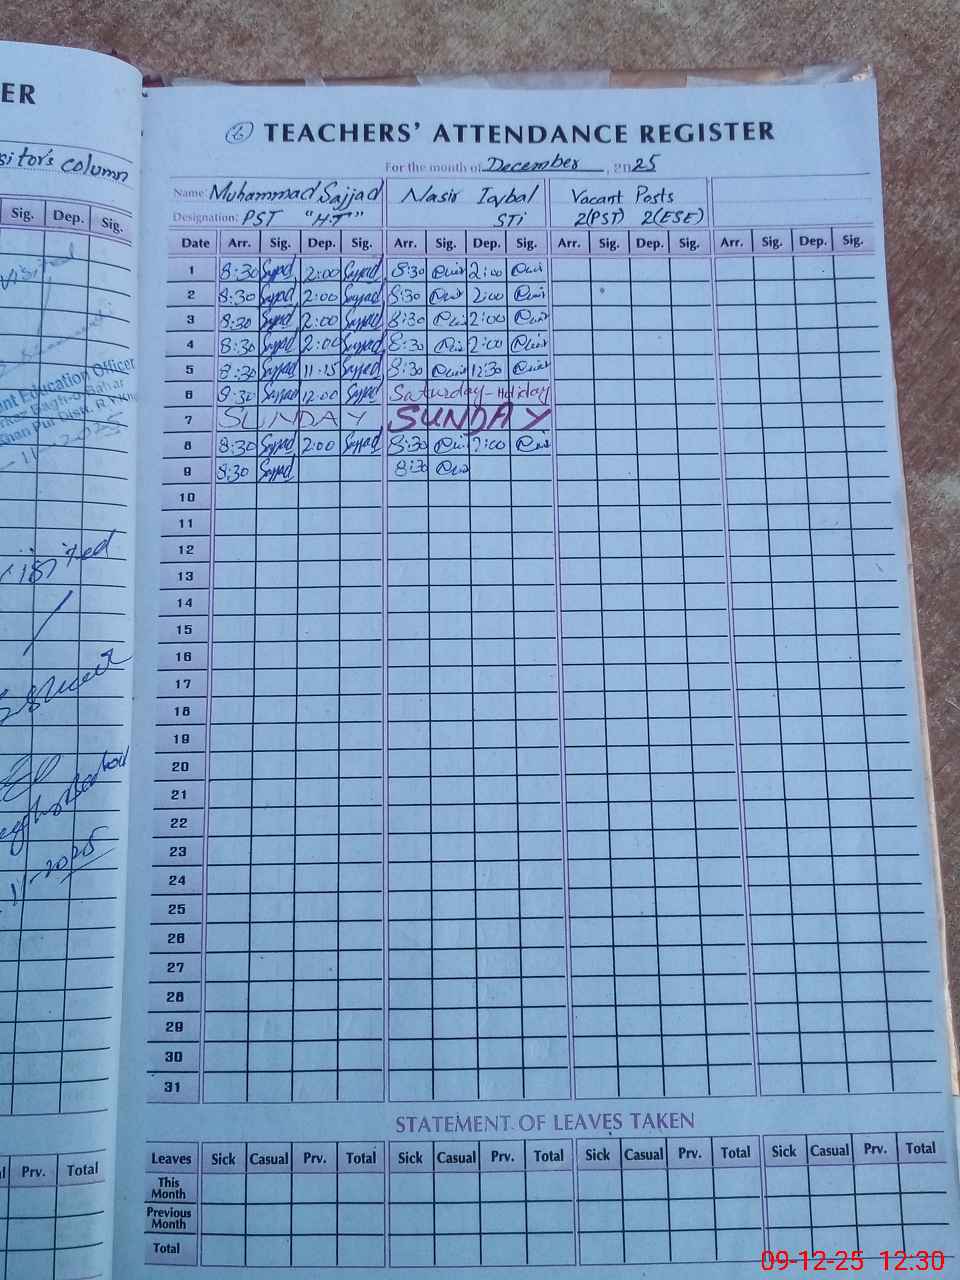 ER
sitor's column
Sig. Dep. Sig.
Visited
nt Education Officer
Bagh-o-Bahar
Khan Pur Distt. R.Y.Khan
11-2025
Visited
11-2025
Prv. Total
6 TEACHERS' ATTENDANCE REGISTER
For the month of December, 2025
Name: Muhammad Sajjad Nasir Iqbal Vacant Posts
Designation: PST "H.T" STi 2(PST) 2(ESE)
Date Arr. Sig. Dep. Sig. Arr. Sig. Dep. Sig. Arr. Sig. Dep. Sig. Arr. Sig. Dep. Sig.
1 8:30 Sajjad 2:00 Sajjad 8:30 2:00
2 8:30 Sajjad 2:00 Sajjad 8:30 2:00
3 8:30 Sajjad 2:00 Sajjad 8:30 2:00
4 8:30 Sajjad 2:00 Sajjad 8:30 2:00
5 8:30 Sajjad 11-15 Sajjad 8:30 12:30
6 8:30 Sajjad 12:00 Sajjad Saturday - Holiday
7 SUNDAY SUNDAY
8 8:30 Sajjad 2:00 Sajjad 8:30 2:00
9 8:30 Sajjad 8:30
10
11
12
13
14
15
16
17
18
19
20
21
22
23
24
25
26
27
28
29
30
31
STATEMENT OF LEAVES TAKEN
Leaves Sick Casual Prv. Total Sick Casual Prv. Total Sick Casual Prv. Total Sick Casual Prv. Total
This
Month
Previous
Month
Total
09-12-25 12:30